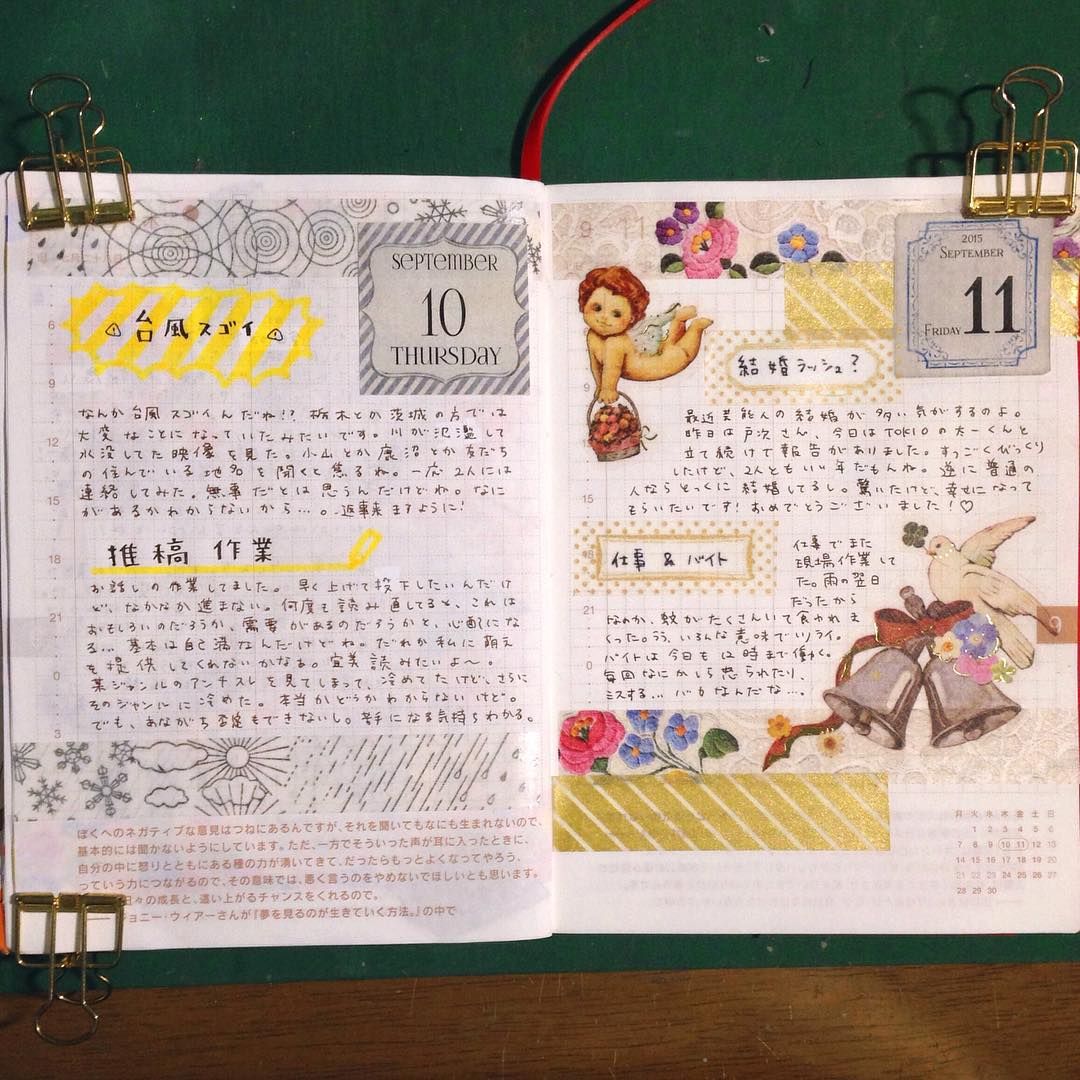 SEPTEMBER
10
THURSDAY
台風スゴイ
なんか台風スゴイんだね!? 栃木とか茨城の方では
大変なことになっていたみたいです。川が氾濫して
水没してた映像を見た。小山とか鹿沼とか友だち
の住んでいる地名を聞くと焦るね。一応2人には
連絡してみた。無事だとは思うんだけどね。なに
があるかわからないから…。返事来ますように!
推稿作業
お話しの作業してました。早く上げて投下したいんだけ
ど、なかなか進まない。何度も読み直してると、これは
おもしろいのだろうか、需要があるのだろうかと、心配にな
る…基本は自己満なんだけどね。だれか私に萌え
を提供してくれないかなぁ。宜美読みたいよ〜。
某ジャンルのアンチスレを見てしまって、冷めてたけど、さらに
そのジャンルに冷めた。本当かどうかわからないけど。
でも、あながち否定もできないし。苦手になる気持ちわかる。
ぼくへのネガティブな意見はつねにあるんですが、それを聞いてもなにも生まれないので、
基本的には聞かないようにしています。ただ、一方でそういった声が耳に入ったときに、
自分の中に怒りとともにある種の力が湧いてきて、だったらもっとよくなってやろう、
っていう力につながるので、その意味では、悪く言うのをやめないでほしいとも思います。
日々の成長と、這い上がるチャンスをくれるので。
ョニー・ウィアーさんが『夢を見るのが生きていく方法。』の中で
6
9
12
15
18
21
0
3
9 11
2015
SEPTEMBER
FRIDAY 11
結婚ラッシュ?
最近芸能人の結婚が多い気がするのよ。
昨日は戸次さん、今日はTOKIOの太一くんと
立て続けて報告がありました。すっごくびっくり
したけど、2人ともいい年だもんね。遂に普通の
人ならとっくに結婚してるし。驚いたけど、幸せになって
もらいたいです!おめでとうございました!♡
仕事 & バイト
仕事でまた
現場作業して
た。雨の翌日
だったから
なのか、蚊がたくさんいて食われま
くった。うう、いろんな意味でツライ。
バイトは今日も12時まで働く。
毎回なにかしら忘られたり、
ミスする…バカなんだな…。
9
15
21
0
9
月 火 水 木 金 土 日
1 2 3 4 5 6
7 8 9 10 11 12 13
14 15 16 17 18 19 20
21 22 23 24 25 26 27
28 29 30